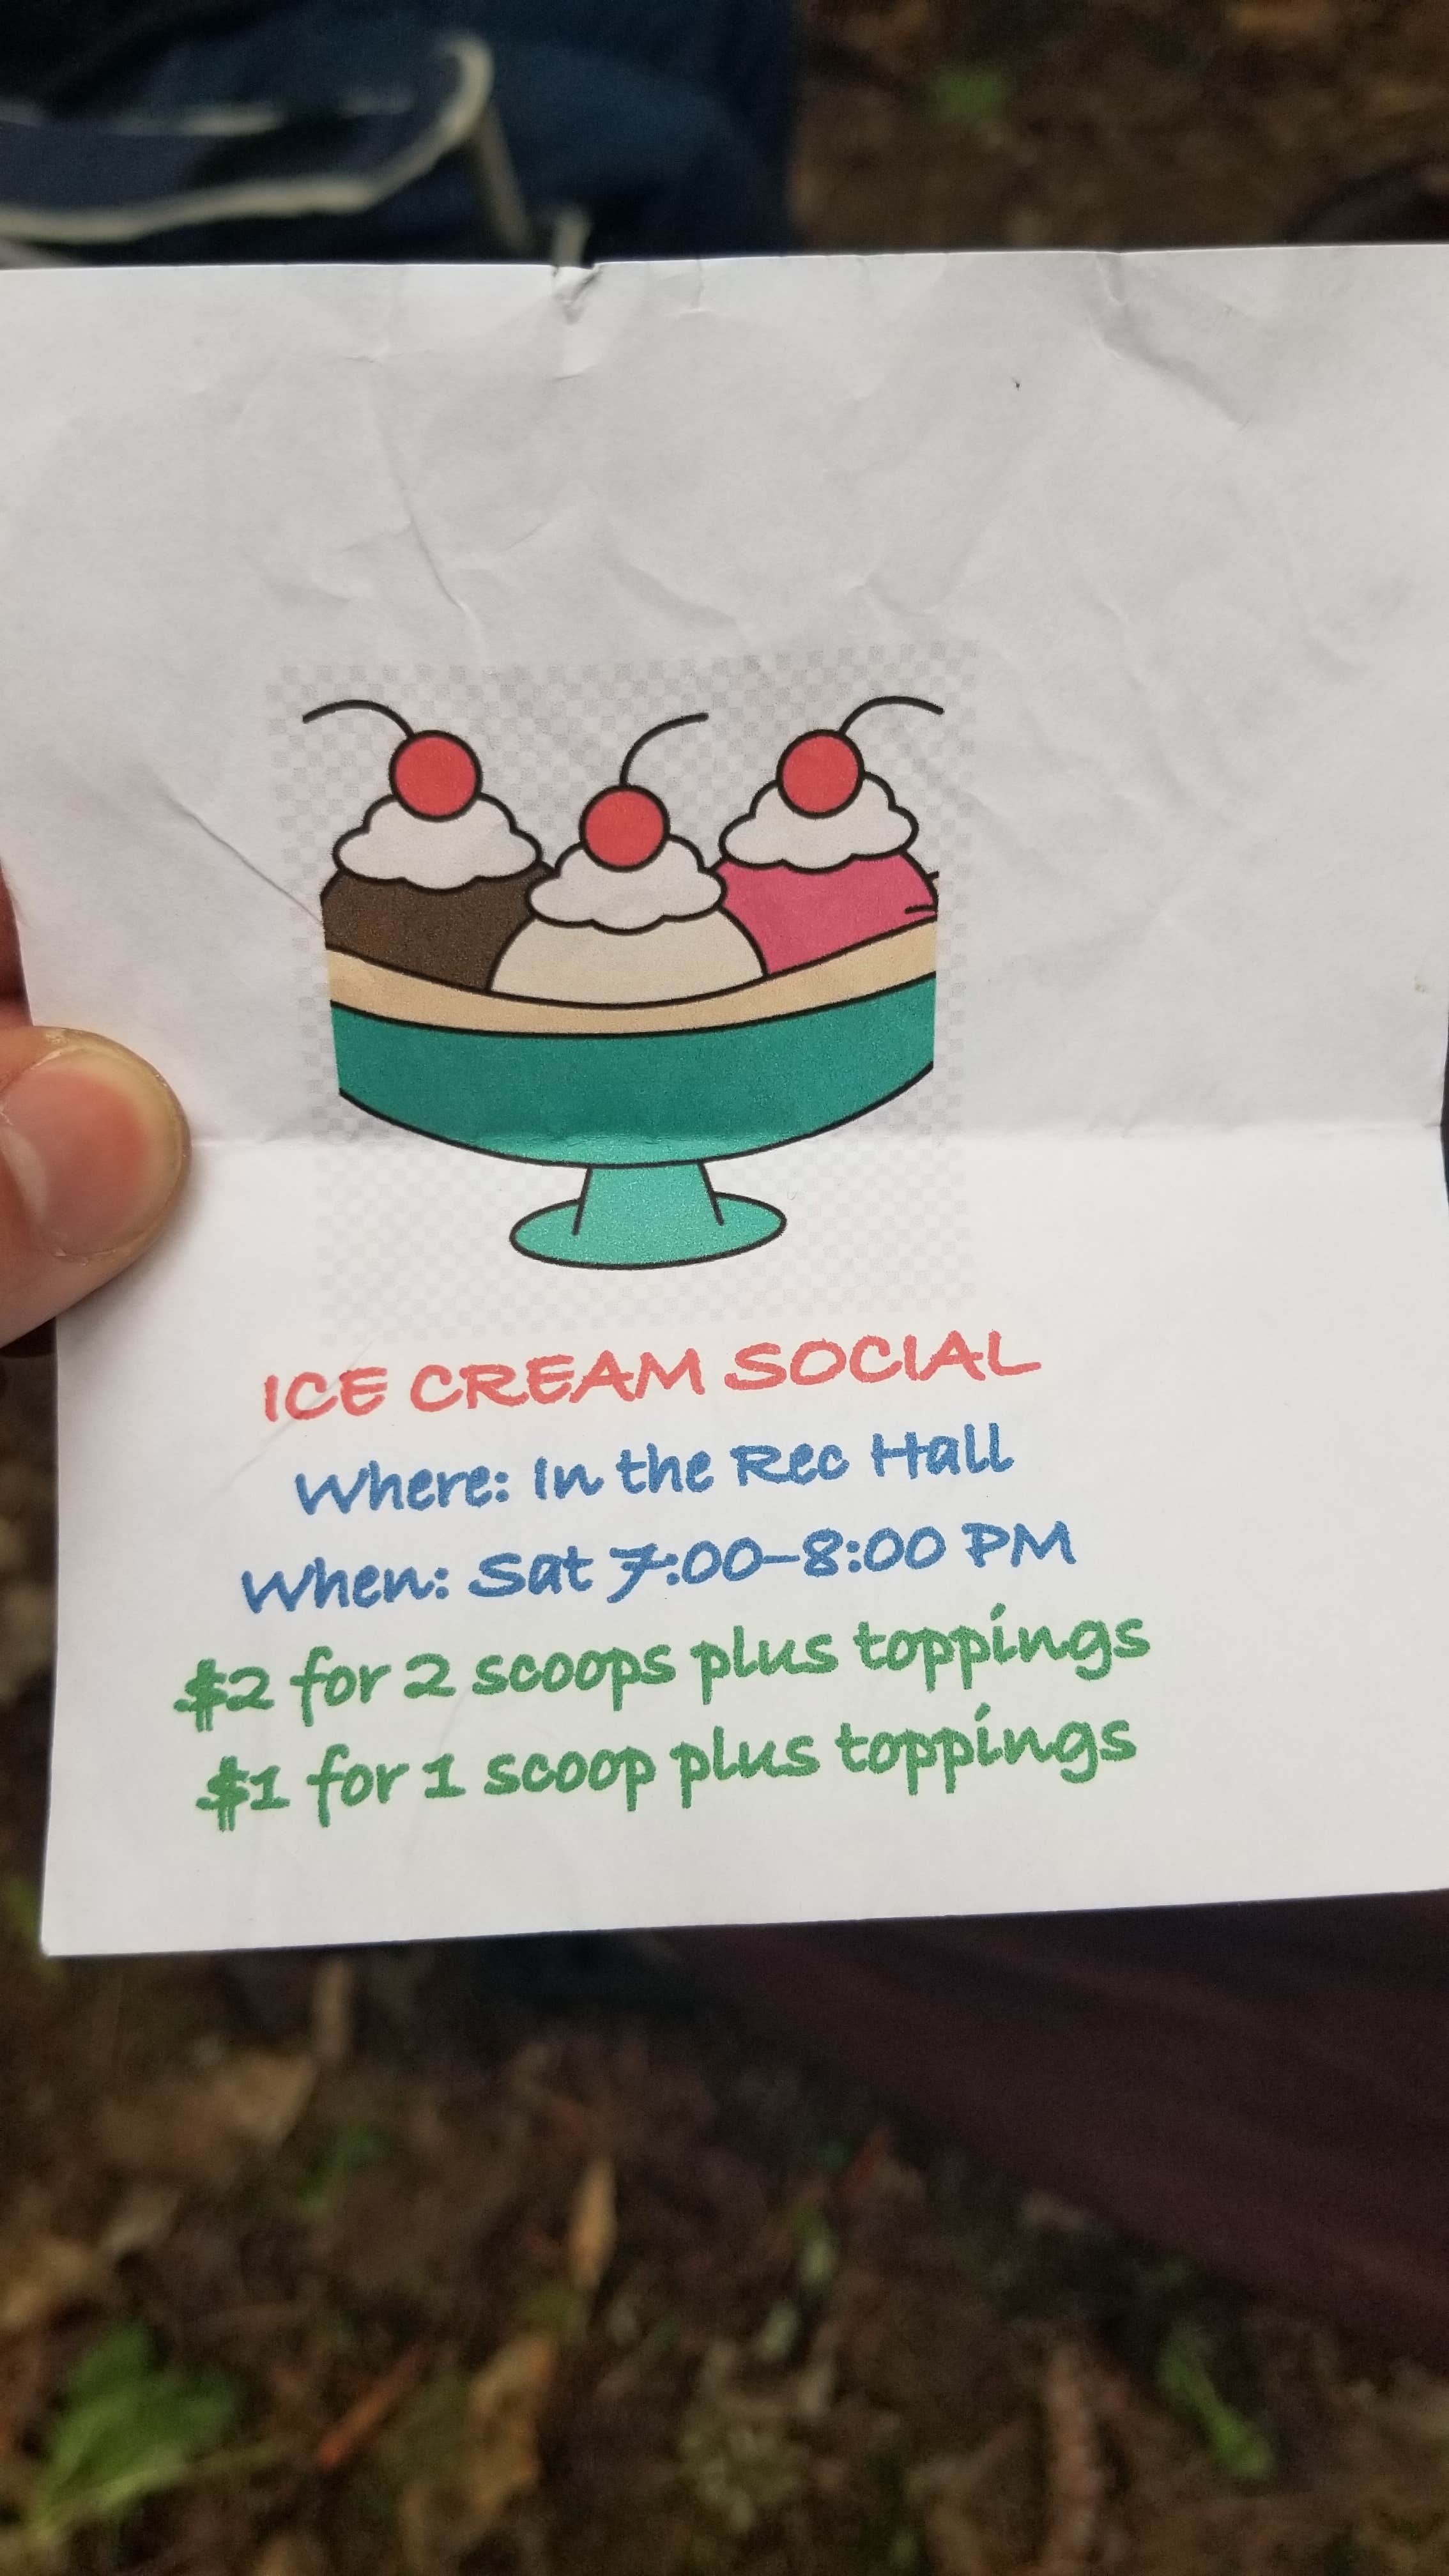 ICE CREAM SOCIAL
Where: In the Rec Hall
When: Sat 7:00-8:00 PM
$2 for 2 scoops plus toppings
$1 for 1 scoop plus toppings